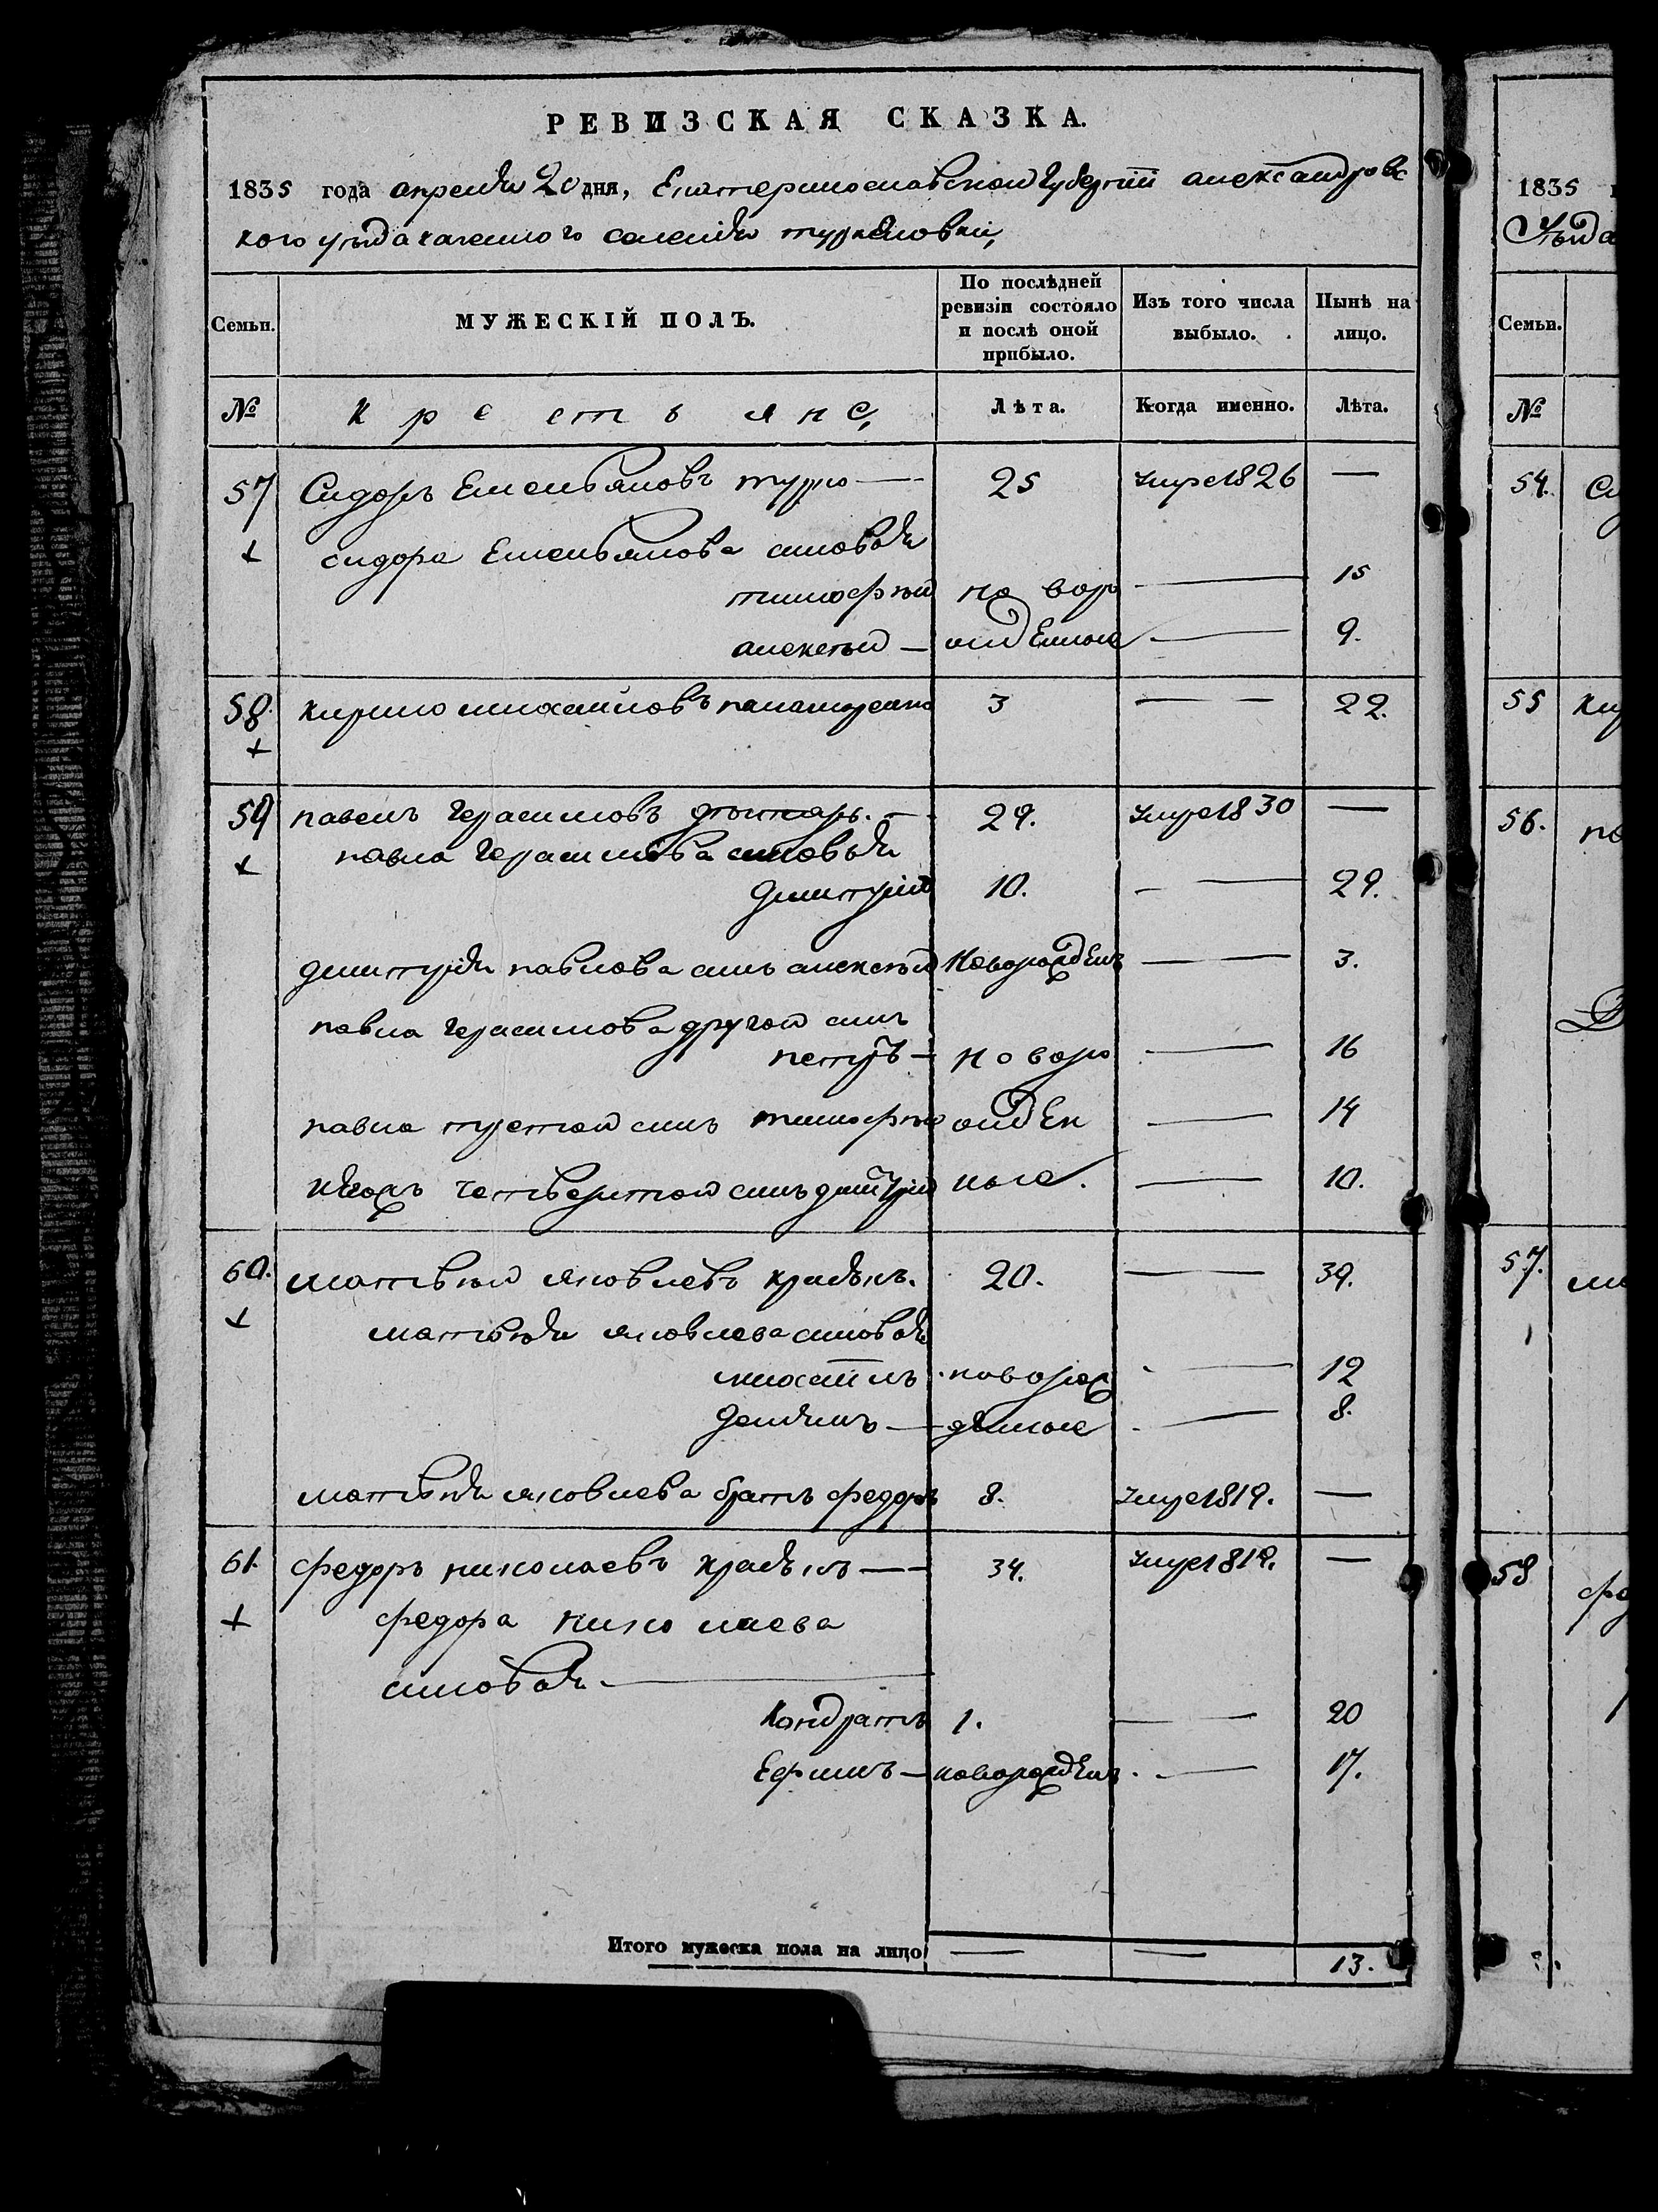 РЕВИЗСКАЯ СКАЗКА.
1835 года апреля 20 дня, Екатеринославской Губернiи александровс
кого уезда казенного селенiя туркеновки,
Семьи. МУЖЕСКIЙ ПОЛЪ. По послѣдней ревизiи состояло и послѣ оной прибыло. Изъ того числа выбыло. Нынѣ на лицо.
№ крестьяне, Лѣта. Когда именно. Лѣта.
57 Сидоръ Емельяновъ турло — 25 умре 1826 —
+ сидора Емельянова сыновья
тимофѣй но воро — 15
алексѣй — жденые — 9.
58. кирило михайловъ паламаренко 3 — — 22.
+
59 павелъ герасимовъ — 29. умре 1830 —
+ павла герасимова сыновья
дмитрiй 10. — — 29.
дмитрiя павлова сынъ алексѣй новорожденъ — 3.
павла герасимова другой сынъ
петръ — новоро — 16
павла третой сынъ тимофѣй жден — 14
четвертой сынъ дмитрiй ные. — 10.
60. матвѣй яковлевъ 20. — 39.
+ матвѣя яковлева сыновья
михайлъ новорож — 12
демянъ — деные — 8.
матвѣя яковлева братъ федоръ 8. умре 1819. —
61. федоръ николаевъ — 34. умре 1818. —
+ федора николаева
сыновья —
Кондратъ 1. — 20
Ефимъ — новорожденъ — 17.
Итого мужеска пола на лицо — — 13.
1835
Уѣзда
Семьи.
№
54. Си
55 Кир
56. па
Д
57. ма
58 фе